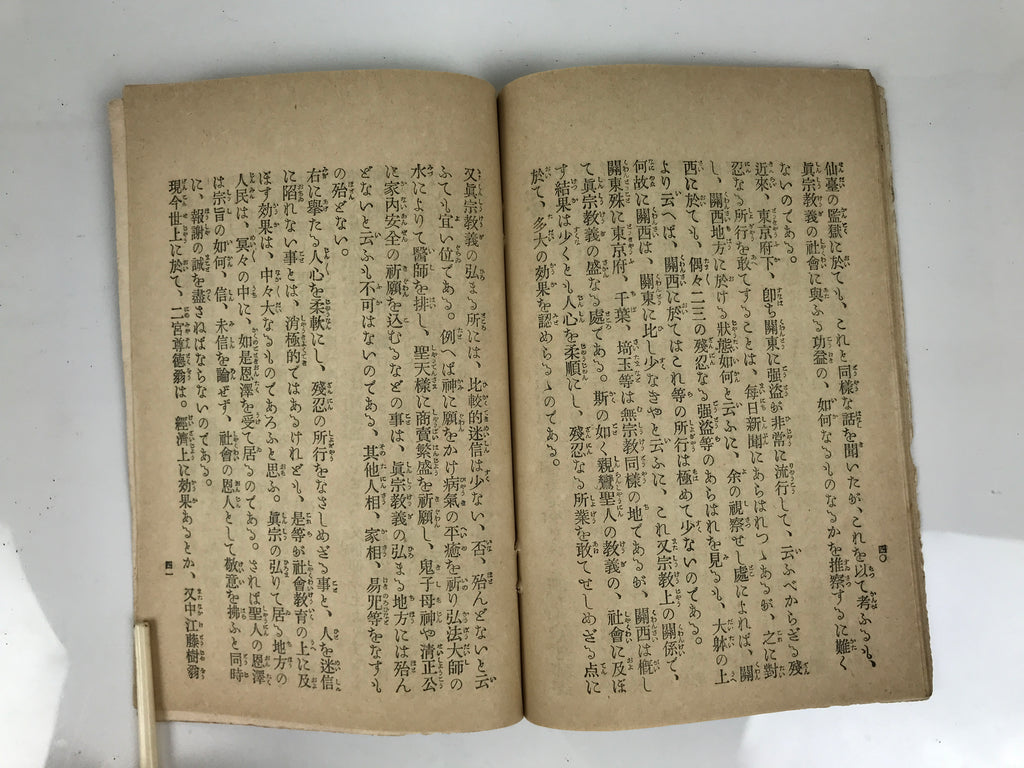 四〇
仙臺の監獄に於ても、これと同樣な話を聞いたが、これを以て考ふるも、
眞宗敎義の社會に與ふる功益の、如何なるものなるかを推察するに難く
ないのである。
近來、東京府下、卽ち關東に强盜が非常に流行して、云ふべからざる殘
忍なる所行を敢てすることは、每日新聞にあらはれつゝあるが、之に對
し、關西地方に於ける狀態如何と云ふに、余の視察せし處によれば、關
西に於ても、偶々二三の殘忍なる强盜等のあらはれを見るも、大躰の上
より云へば、關西に於てはこれ等の所行は極めて少ないのである。
何故に關西は、關東に比し少なきやと云ふに、これ又宗敎上の關係で、
關東殊に東京府、千葉、埼玉等は無宗敎同樣の地であるが、關西は槪し
て眞宗敎義の盛なる處である。斯の如く親鸞聖人の敎義の、社會に及ぼ
す結果は少くとも人心を柔順にし、殘忍なる所業を敢てせしめざる點に
於て、多大の効果を認めらるゝのである。
又眞宗敎義の弘まる所には、比較的迷信は少ない、否、殆んどないと云
ふても宜い位である。例へば神に願をかけ病氣の平癒を祈り弘法大師の
水によりて醫師を排し、聖天樣に商賣繁盛を祈願し、鬼子母神や淸正公
に家內安全の祈願を込むるなどの事は、眞宗敎義の弘まる地方には殆ん
どないと云ふも不可はないのである、其他人相、家相、易咒等をなすも
の殆どない。
右に擧たる人心を柔軟にし、殘忍の所行をなさしめざる事と、人を迷信
に陷れない事とは、消極的ではあるけれども、是等が社會敎育の上に及
ぼす効果は、中々大なるものであろふと思ふ。眞宗の弘りて居る地方の
人民は、冥々の中に、如是恩澤を受て居るのである。されば聖人の恩澤
は宗旨の如何、信、未信を論ぜず、社會の恩人として敬意を拂ふと同時
に、報謝の誠を盡さねばならないのである。
現今世上に於て、二宮尊德翁は。經濟上に効果あるとか、又中江藤樹翁
四一